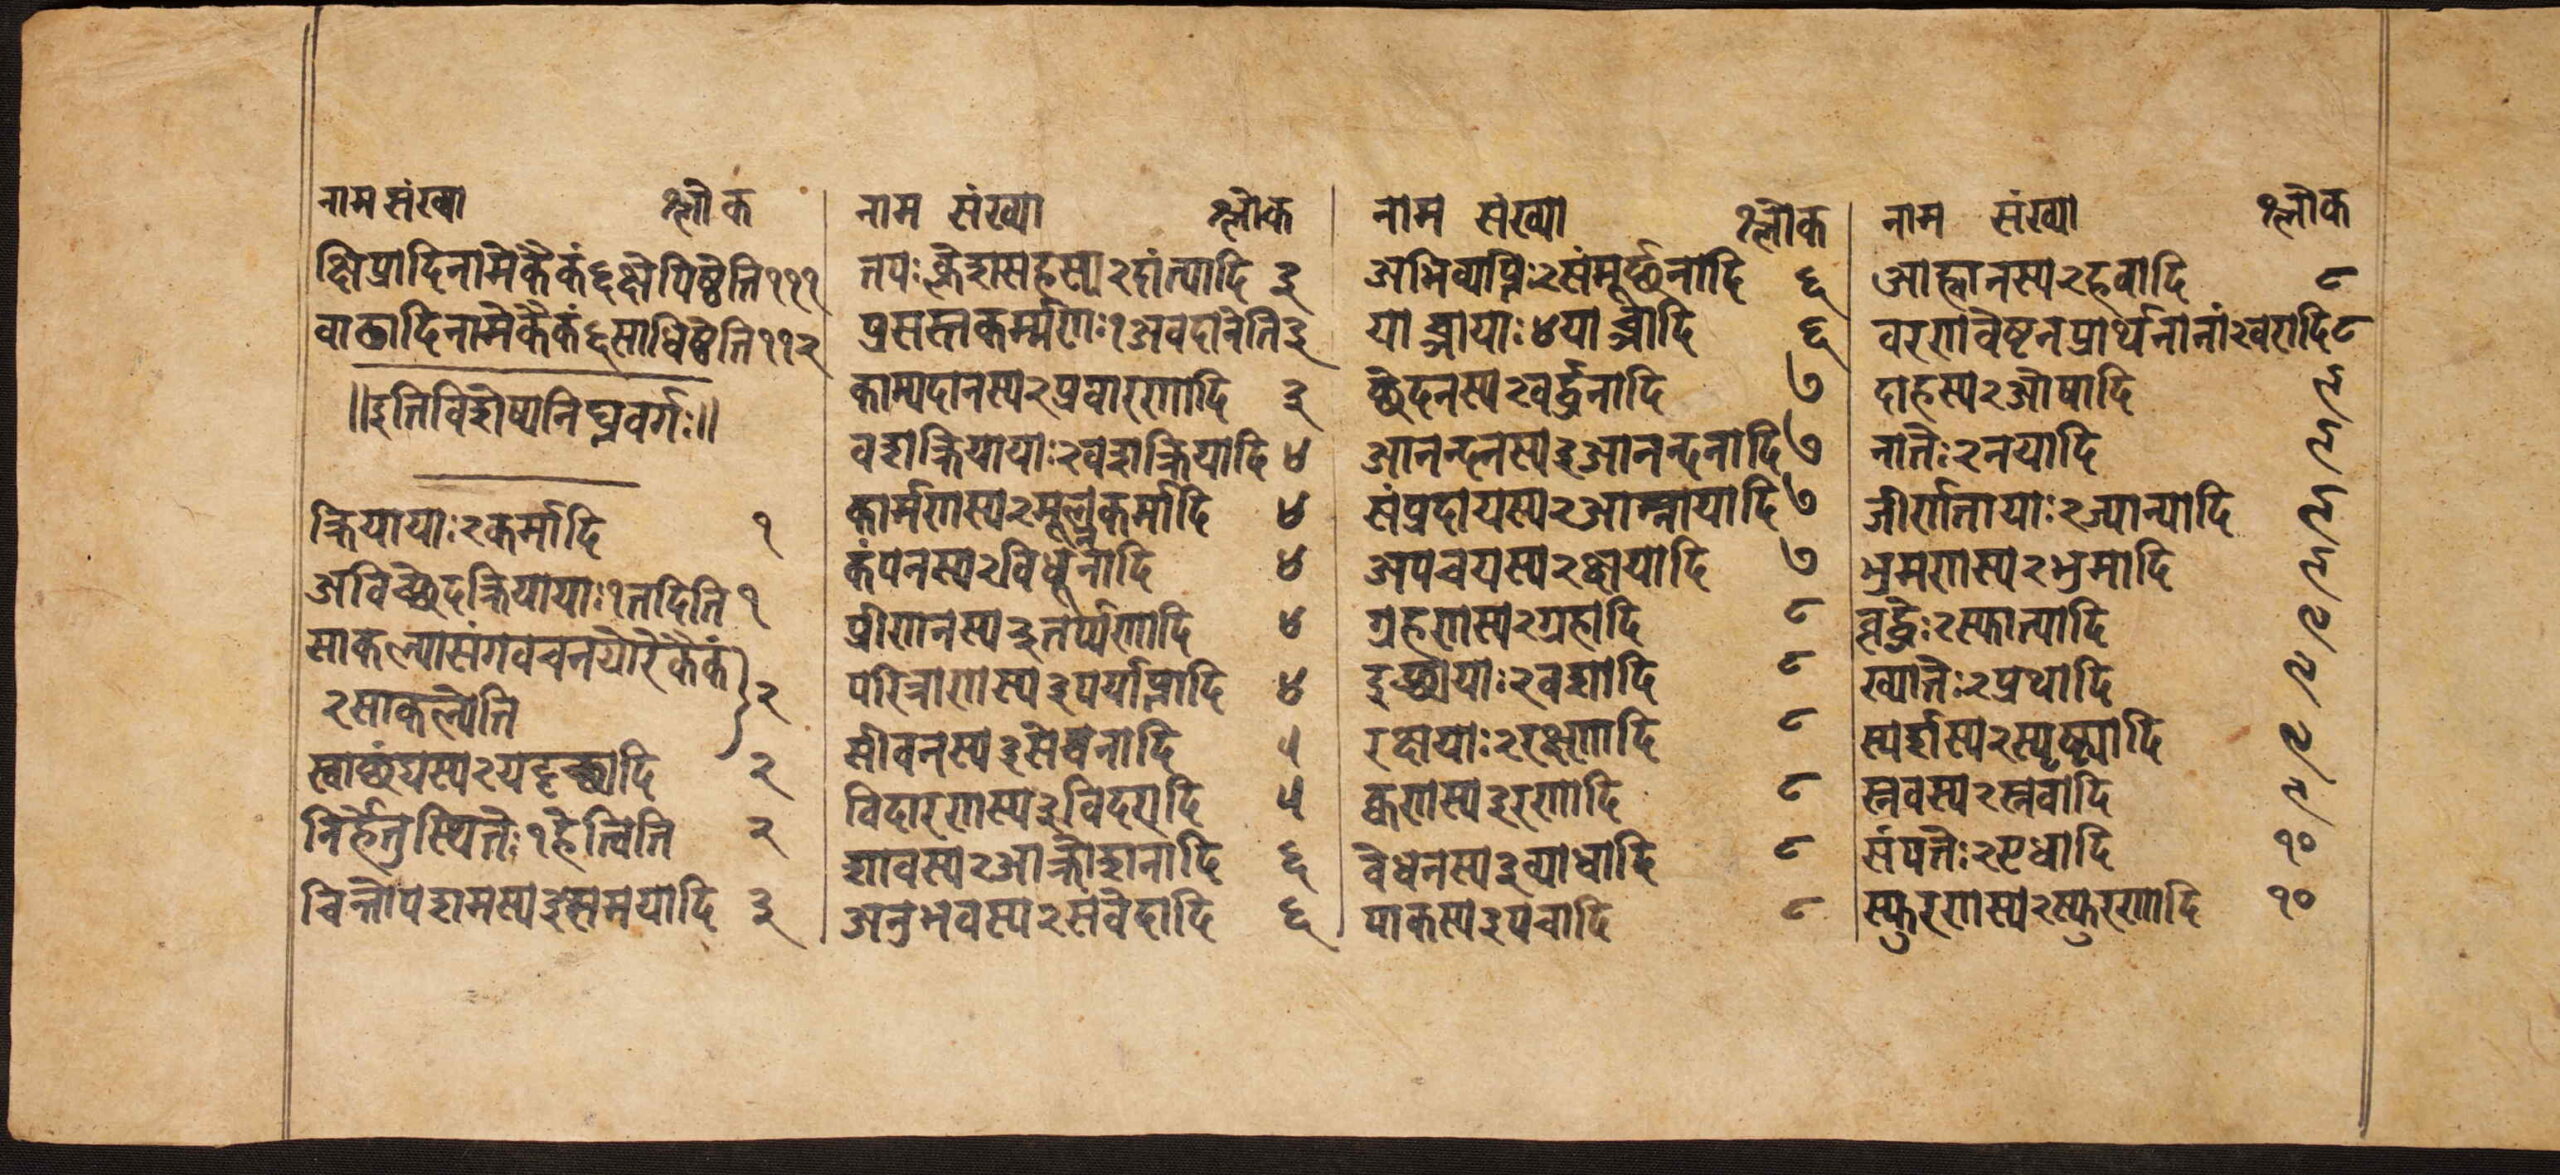 नाम संख्या श्लोक
क्षिप्रादिनामेकैकं६क्षेपिष्ठेति१११
वाढादिनामेकैकं६साधिष्ठेति११२
॥इतिविशेष्यनिघ्नवर्गः॥
क्रियायाः२कर्मादि १
अविच्छेदक्रियायाः१तदिति १
साकल्यासंगवचनयोरेकैकं
२साकल्येति २
स्वाछंद्यस्य२यदृच्छादि २
निर्हेतुस्थितेः१हेत्विति २
चित्तोपशमस्य३समयादि ३
नाम संख्या श्लोक
तपःक्लेशसहस्य२दांत्यादि ३
प्रसस्तकर्म्मणः१अवदानेति ३
काम्यदानस्य२प्रवारणादि ३
वशक्रियायाः२वशक्रियादि ४
कार्मणस्य२मूलकर्मादि ४
कंपनस्य२विधूननादि ४
प्रीणनस्य३तर्प्पणादि ४
परित्राणस्य३पर्याप्त्यादि ४
सीवनस्य३सेवनादि ५
विदारणस्य३विदरादि ५
शापस्य२आक्रोशनादि ६
अनुभवस्य२संवेदादि ६
नाम संख्या श्लोक
अभिव्याप्तेः२संमूर्छनादि ६
याञ्चायाः४याञ्चादि ६
छेदनस्य२वर्द्धनादि ७
आनन्दनस्य३आनन्दनादि ७
संप्रदायस्य२आम्नायादि ७
अपचयस्य२क्षयादि ७
ग्रहणस्य२ग्रहादि ८
इच्छायाः२वशादि ८
रक्षायाः२रक्ष्णादि ८
क्वणस्य२रणादि ८
वेधनस्य२व्याधादि ८
पाकस्य२पचादि ८
नाम संख्या श्लोक
आह्वानस्य२हवादि ८
वरणावेष्टनप्रार्थनानां२वरादि ८
दाहस्य२ओषादि ९
नीतेः२नयादि ९
जीर्णतायाः२ज्यान्यादि ९
भ्रमणस्य२भ्रमादि ९
वृद्धेः२स्फात्यादि ९
ख्यातेः२प्रथादि ९
स्पर्शस्य२स्पृष्ट्यादि ९
स्नवस्य२स्नवादि ९
संपत्तेः२एधादि १०
स्फुरणस्य२स्फुरणादि १०